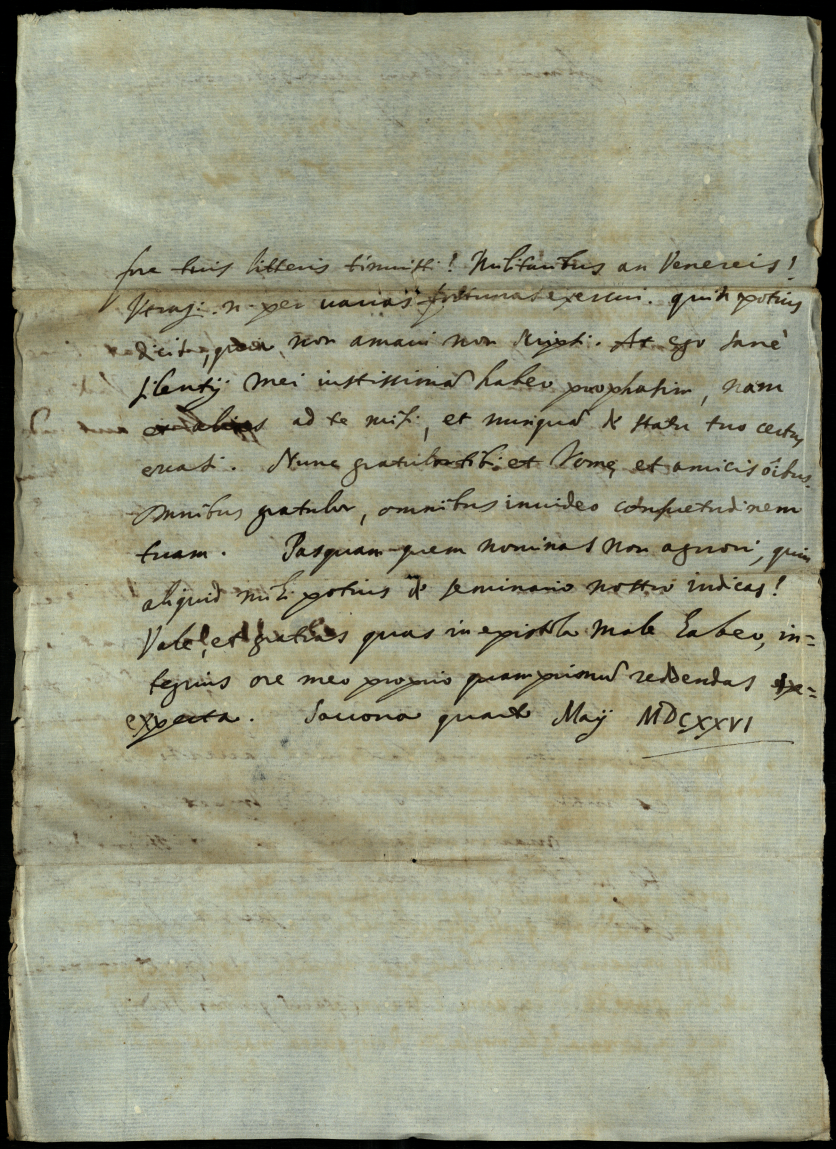 fore tuis litteris timuisti! Militaribus an Venereis!
Utraq. n. per varias fortunas exercui. quin potius
dicito, quia non amavi non scripsi. At ego sanè
silentij mei iustissimã habeo prophasim, nam
ad te misi, et nunquã de statu tuo certus
erati. Nunc gratulor tibi, et Romę, et amicis õibus.
Omnibus gratulor, omnibus invideo consuetudinem
tuam. Pasquam quem nominas non agnovi, quin
aliquid mihi potius de seminario nostro indicas!
Vale, et gratias quas in epistola male habeo, in=
tegrius ore meo proprio quamprimũ reddendas
expecta. Savona quarto Maij MDCXXVI